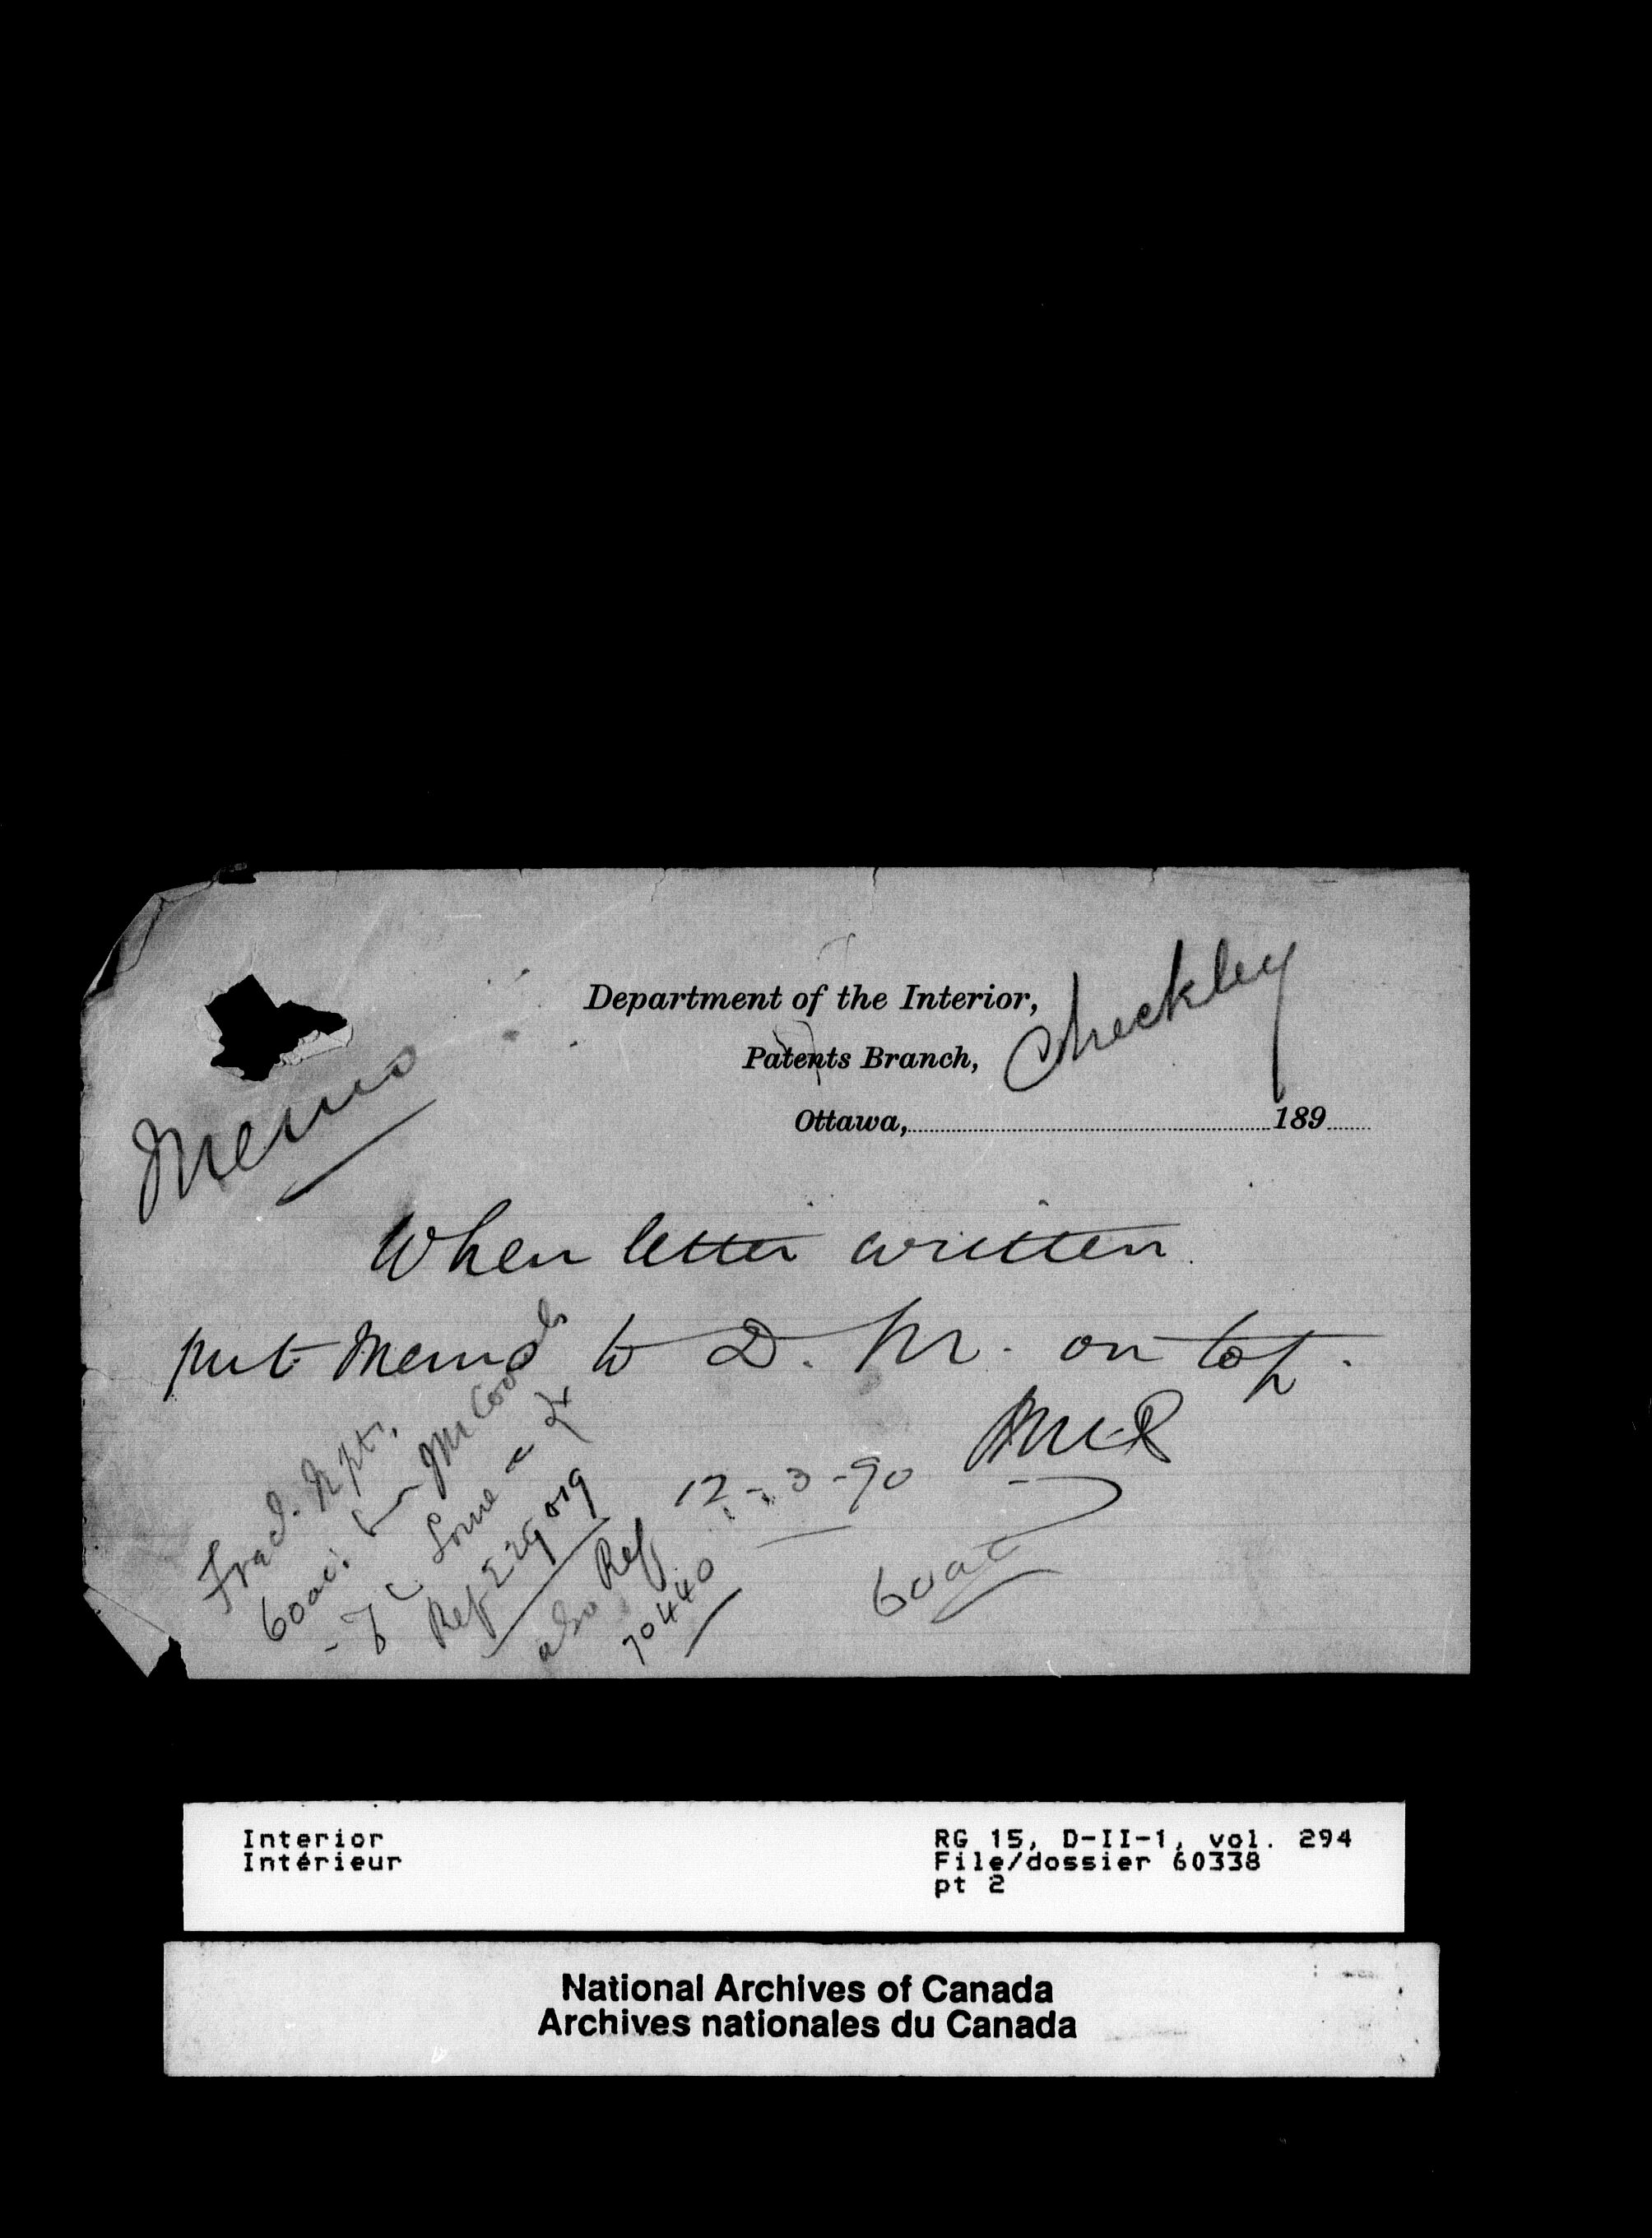 Department of the Interior,
Checkley
Patents Branch,
Ottawa, 189
Memo
When letter written
put Memo to D. M. on top.
12-3-90
60 ac
Frac.
60 ac.
Ref 229019
also Ref
70440
Interior
Intérieur
RG 15, D-II-1, vol. 294
File/dossier 60338
pt 2
National Archives of Canada
Archives nationales du Canada